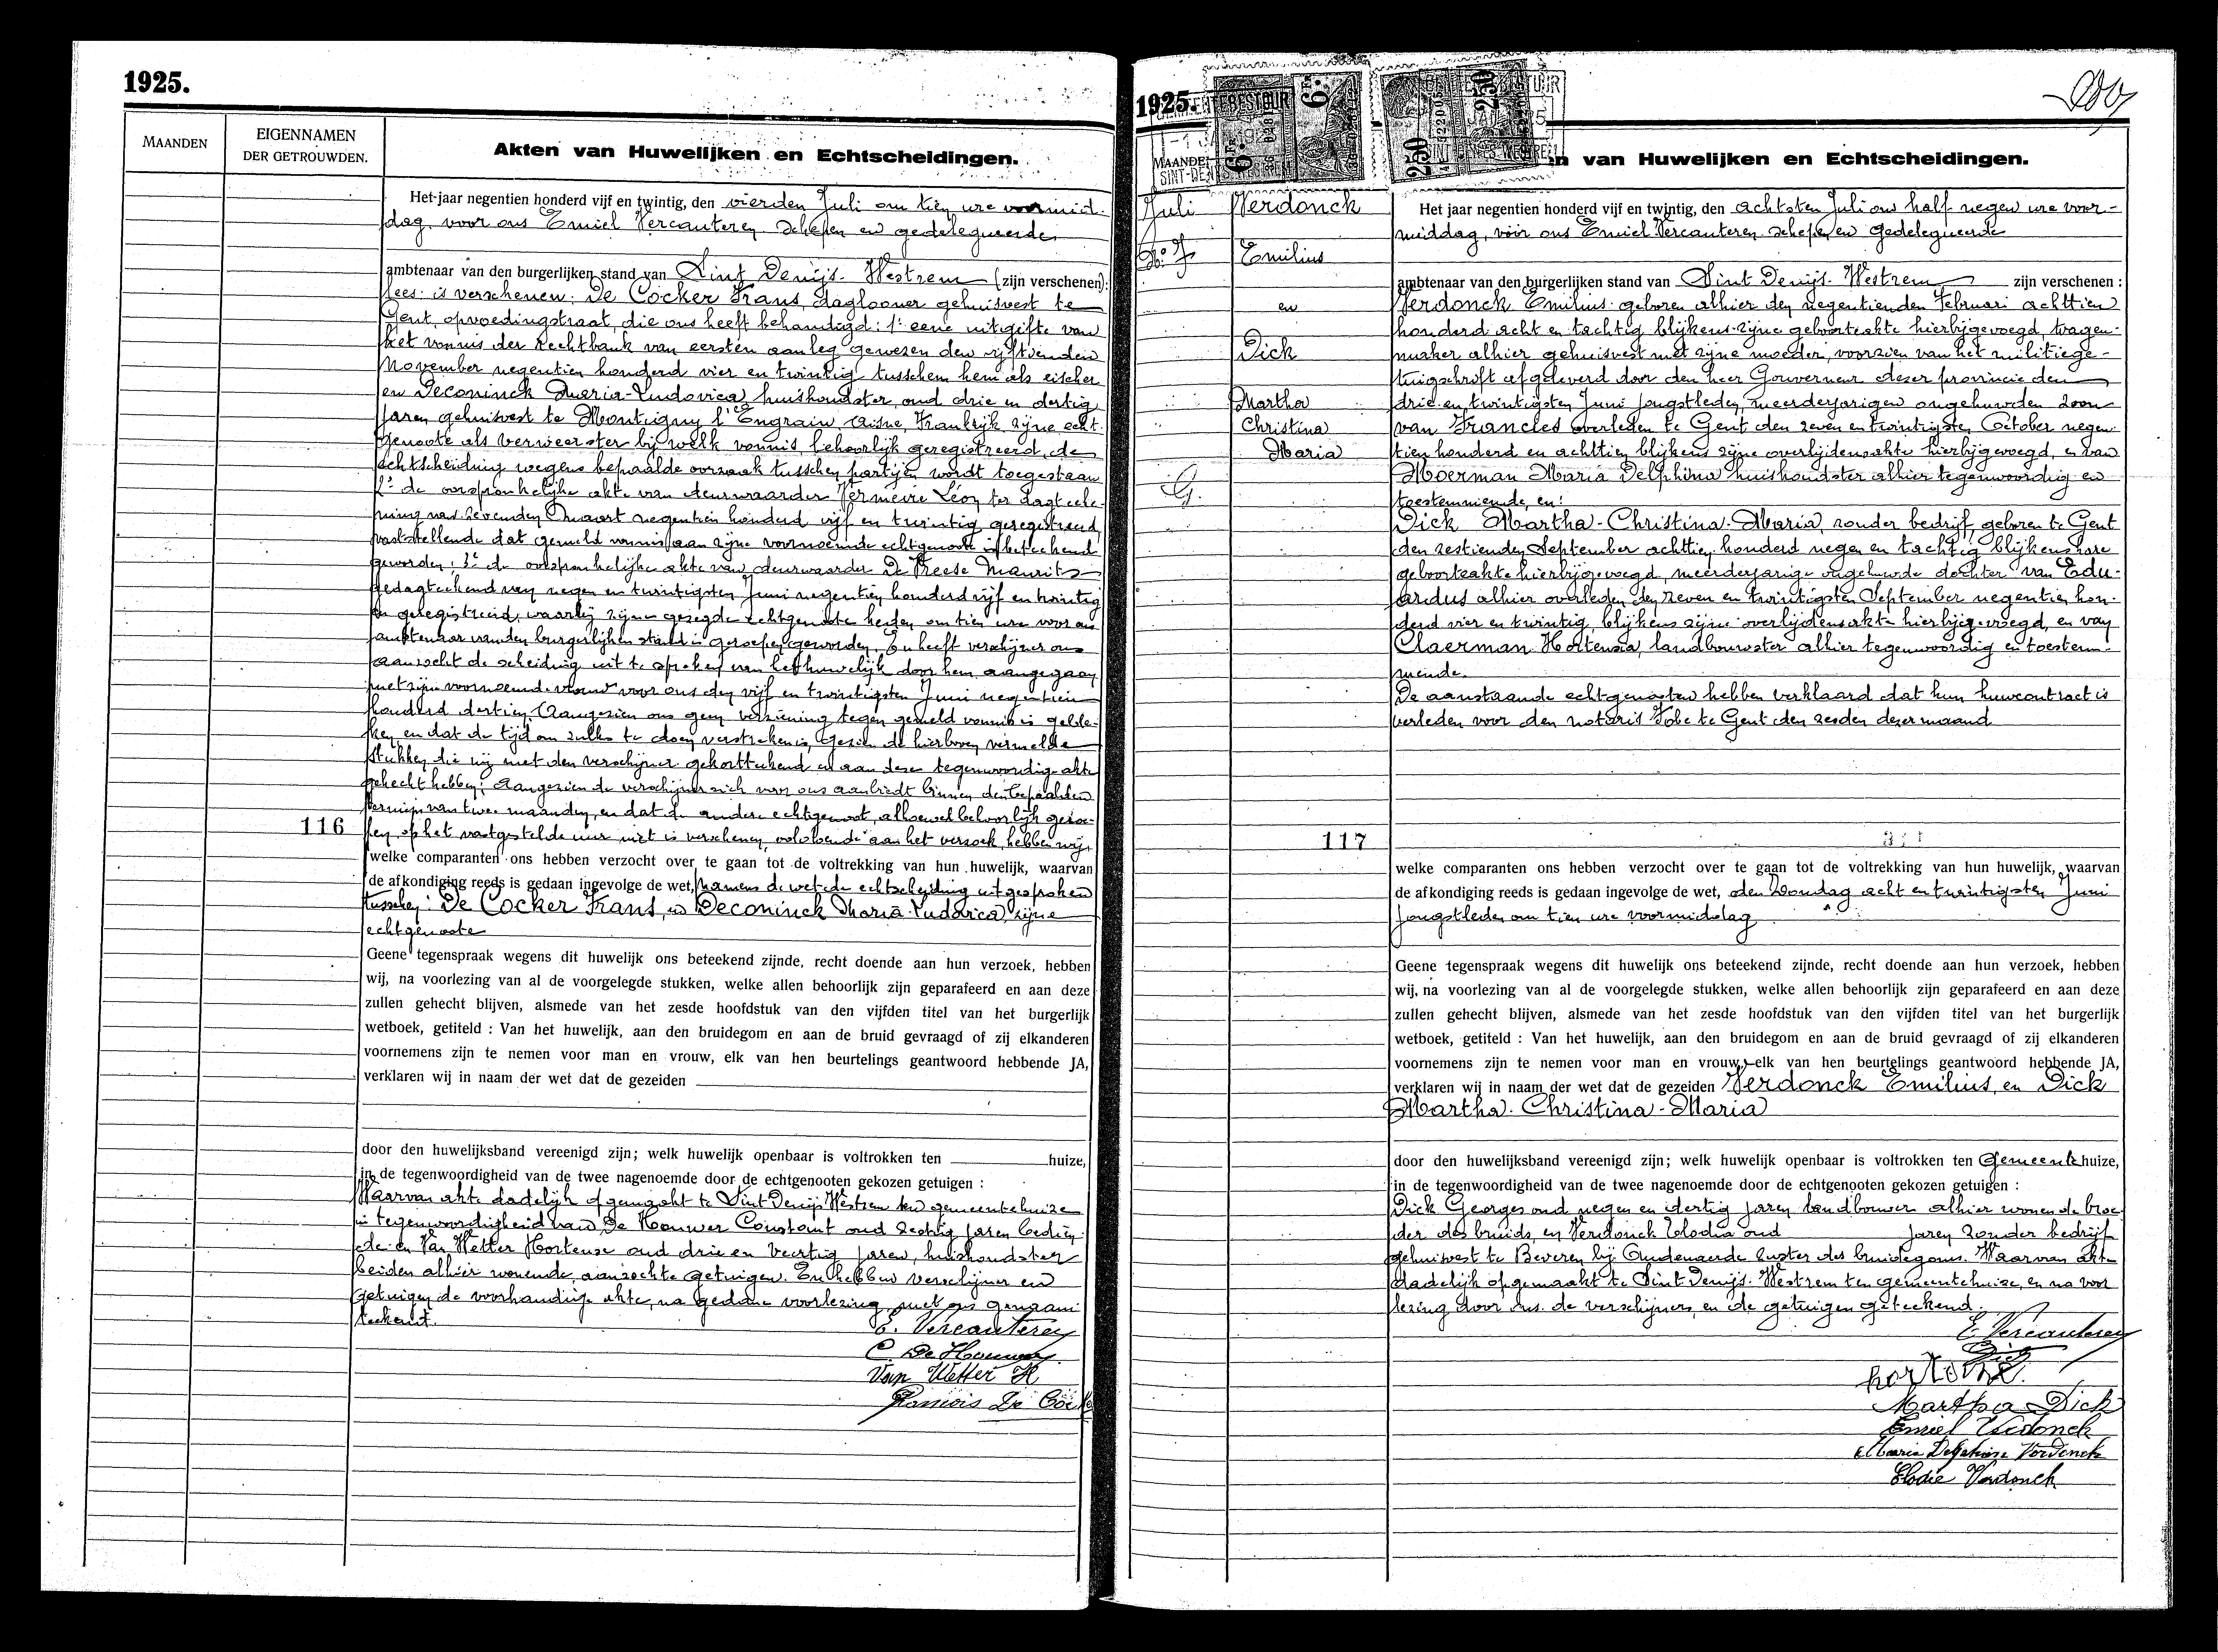 1925.
MAANDEN
EIGENNAMEN
DER GETROUWDEN.
Akten van Huwelijken en Echtscheidingen.
Het jaar negentien honderd vijf en twintig, den vierden Juli om tien ure voormid-
dag, voor ons Emiel Vercauteren schepen en gedelegueerde
ambtenaar van den burgerlijken stand van Sint Denijs-Westrem (zijn verschenen):
lees: is verschenen: De Cocker Frans, daglooner gehuisvest te
Gent, opvoedingstraat, die ons heeft behandigd: 1° eene uitgifte van
het vonnis der Rechtbank van eersten aanleg gewezen den vijftienden
November negentien honderd vier en twintig tusschem hem als eischer
en Deconinck Maria-Ludovica, huishoudster, oud drie en dertig
jaren gehuisvest te Montigny l'Engrain Aisne, Frankrijk zijne echt-
genoote als verweerster bij welk vonnis, behoorlijk geregistreerd, de
echtscheiding wegens bepaalde oorzaak tusschen partijen wordt toegestaan
2° de oorspronkelijke akte van deurwaarder Vermeire Léon ter dagteeke-
ning van zevenden Maart negentien honderd vijf en twintig geregistreerd,
vaststellende dat gemeld vonnis aan zijne voornoemde echtgenoote is beteekend
geworden; 3° de oorspronkelijke akte van deurwaarder De Vreese Maurits
gedagteekend van negen en twintigsten Juni negentien honderd vijf en twintig
en geregistreerd, waarbij zijne gezegde echtgenoote heden om tien ure voor ons
ambtenaar van den burgerlijken stand is geroepen geworden. En heeft verschijner ons
aanzocht de scheiding uit te spreken van het huwelijk door hem aangegaan
met zijne voornoemde vrouw voor ons den vijf en twintigsten Juni negentien
honderd dertien. Aangezien ons geen verziening tegen gemeld vonnis is geble-
ken en dat de tijd om zulks te doen verstreken is, gezien de hierboven vermelde
stukken die wij met den verschijner gekortteekend en aan deze tegenwoordige akte
gehecht hebben; Aangezien de verschijner zich voor ons aanbiedt binnen den bepaalden
termijn van twee maanden, en dat de andere echtgenoot, alhoewel behoorlijk geroe-
116 pen, op het vastgestelde uur niet is verschenen, voldoende aan het verzoek, hebben wij
welke comparanten ons hebben verzocht over te gaan tot de voltrekking van hun huwelijk, waarvan
de afkondiging reeds is gedaan ingevolge de wet, namens de wet de echtscheiding uitgesproken
tusschen: De Cocker Frans, en Deconinck Maria-Ludovica, zijne
echtgenoote
Geene tegenspraak wegens dit huwelijk ons beteekend zijnde, recht doende aan hun verzoek, hebben
wij, na voorlezing van al de voorgelegde stukken, welke allen behoorlijk zijn geparafeerd en aan deze
zullen gehecht blijven, alsmede van het zesde hoofdstuk van den vijfden titel van het burgerlijk
wetboek, getiteld : Van het huwelijk, aan den bruidegom en aan de bruid gevraagd of zij elkanderen
voornemens zijn te nemen voor man en vrouw, elk van hen beurtelings geantwoord hebbende JA,
verklaren wij in naam der wet dat de gezeiden
door den huwelijksband vereenigd zijn; welk huwelijk openbaar is voltrokken ten huize,
in de tegenwoordigheid van de twee nagenoemde door de echtgenooten gekozen getuigen :
Waarvan akte dadelijk opgemaakt te Sint Denijs Westrem ten gemeentehuize
in tegenwoordigheid van De Houwer Constant oud zestig jaren bedien-
de en Van Wetter Hortense oud drie en veertig jaren, huishoudster
beiden alhier wonende, aanzochte getuigen. En hebben verschijner en
getuigen de voorhandige akte, na gedane voorlezing, met ons genaam-
teekend.
E. Vercauteren
C De Houwer
Van Wetter H
François De Cocke
1925.
GEMEENTEBESTUUR
6.Fr 6.Fr
250 250
MAANDE
SINT-DEN
n van Huwelijken en Echtscheidingen.
Juli
N° 7
G.
Verdonck
Emilius
en
Dick
Martha
Christina
Maria
Het jaar negentien honderd vijf en twintig, den achtsten Juli om half negen ure voor-
middag, voor ons Emiel Vercauteren schepen en gedelegueerde
ambtenaar van den burgerlijken stand van Sint Denijs-Westrem zijn verschenen :
Verdonck Emilius geboren alhier den negentienden Februari achttien
honderd acht en tachtig blijkens zijne geboorteakte hierbijgevoegd, wagen-
maker alhier gehuisvest met zijne moeder, voorzien van het militiege-
tuigschrift afgeleverd door den heer Gouverneur dezer provincie den
drie en twintigsten Juni jongstleden, meerderjarigen ongehuwden zoon
van Francies overleden te Gent den zeven en twintigsten October negen-
tien honderd en achttien blijkens zijne overlijdensakte hierbijgevoegd, en van
Moerman Maria Delphina huishoudster alhier tegenwoordig en
toestemmende, en:
Dick Martha-Christina-Maria, zonder bedrijf, geboren te Gent
den zestienden September achttien honderd negen en tachtig blijkens hare
geboorteakte hierbijgevoegd, meerderjarige ongehuwde dochter van Edu-
ardus alhier overleden den zeven en twintigsten September negentien hon-
derd vier en twintig blijkens zijne overlijdensakte hierbijgevoegd, en van
Claerman Hortensia, landbouwster alhier tegenwoordig en toestem-
mende.
De aanstaande echtgenooten hebben verklaard dat hun huwcontract is
verleden voor den notaris Fobe te Gent den zesden dezer maand
117
welke comparanten ons hebben verzocht over te gaan tot de voltrekking van hun huwelijk, waarvan
de afkondiging reeds is gedaan ingevolge de wet, den Zondag acht en twintigsten Juni
jongstleden om tien ure voormiddag
Geene tegenspraak wegens dit huwelijk ons beteekend zijnde, recht doende aan hun verzoek, hebben
wij, na voorlezing van al de voorgelegde stukken, welke allen behoorlijk zijn geparafeerd en aan deze
zullen gehecht blijven, alsmede van het zesde hoofdstuk van den vijfden titel van het burgerlijk
wetboek, getiteld : Van het huwelijk, aan den bruidegom en aan de bruid gevraagd of zij elkanderen
voornemens zijn te nemen voor man en vrouw, elk van hen beurtelings geantwoord hebbende JA,
verklaren wij in naam der wet dat de gezeiden Verdonck Emilius, en Dick
Martha-Christina-Maria
door den huwelijksband vereenigd zijn; welk huwelijk openbaar is voltrokken ten Gemeentehuize,
in de tegenwoordigheid van de twee nagenoemde door de echtgenooten gekozen getuigen :
Dick Georges oud negen en dertig jaren landbouwer alhier wonende broe-
der des bruids, en Verdonck Elodia oud jaren zonder bedrijf
gehuisvest te Beveren bij Oudenaerde zuster des bruidegoms. Waarvan akte
dadelijk opgemaakt te Sint Denijs-Westrem ten gemeentehuize, en na voor
lezing door ons, de verschijners en de getuigen geteekend.
E. Vercauteren
Martha Dick
Emiel Verdonck
Maria Delphine Verdonck
Elodie Verdonck